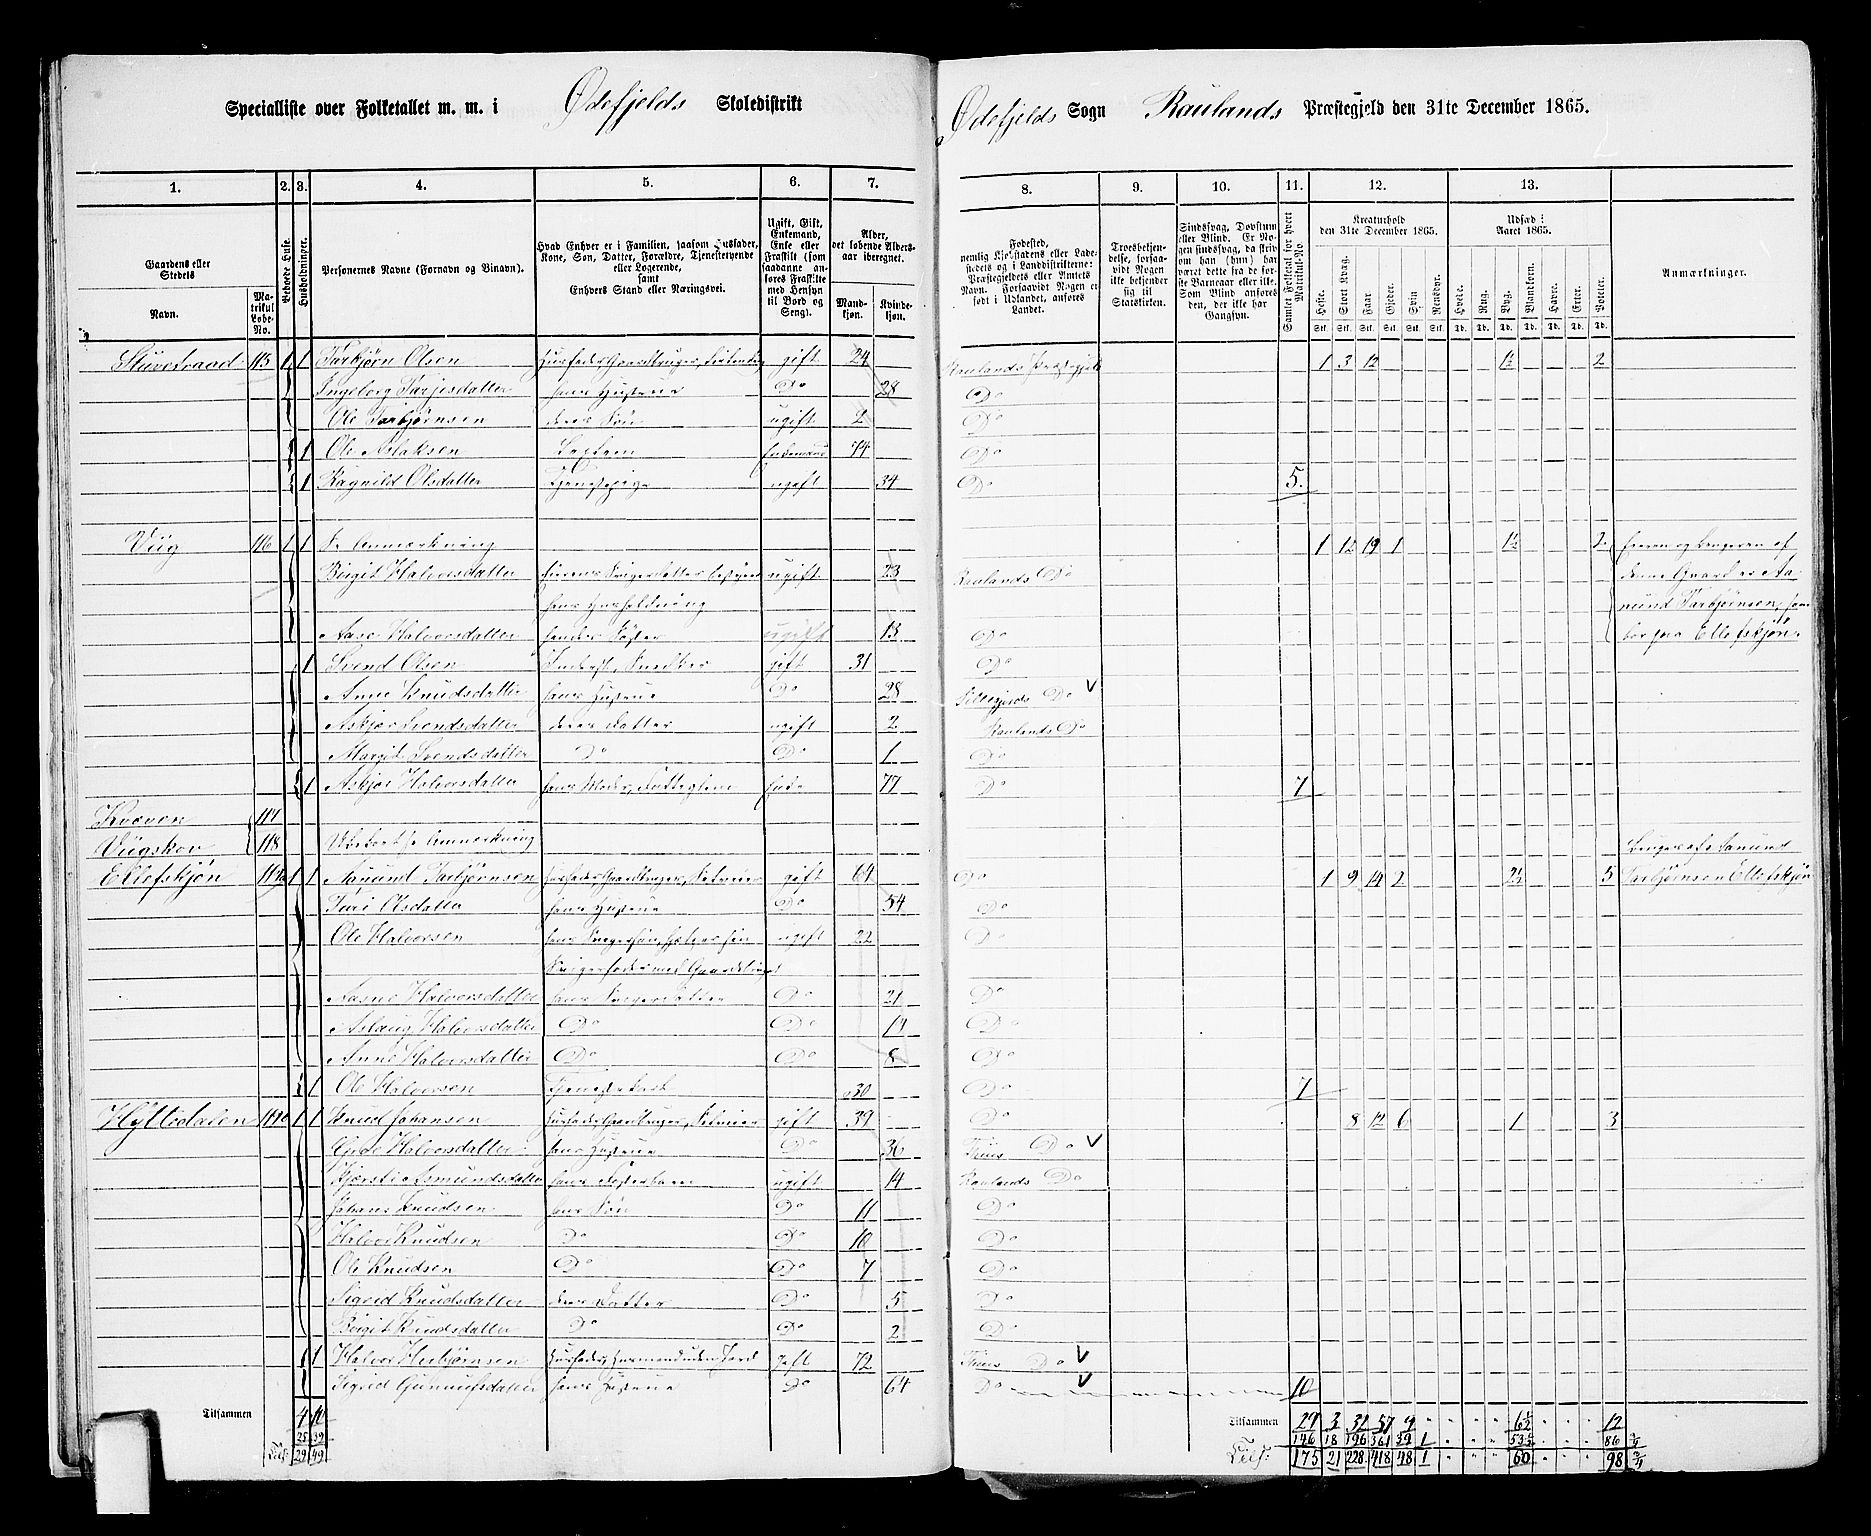 Specialliste over Folketallet m. m. i Ødefjelds Skoledistrikt
Ødefjelds Sogn Raulands Præstegjeld den 31te December 1865.
1. 2. 3. 4. 5. 6. 7. 8. 9. 10. 11. 12. 13.
Gaardens eller Stedets
Navn.
Matrikul Løbe-No.
Beboede Huse.
Husholdninger.
Personernes Navne (Fornavn og Binavn).
Hvad Enhver er i Familien, saasom Husfader, Kone, Søn, Datter, Forældre, Tjenestetyende eller Logerende, samt Enhvers Stand eller Næringsvei.
Ugift, Gift, Enkemand, Enke eller Fraskilt (som saadanne anføres Fraskilte med Hensyn til Bord og Seng).
Alder, det løbende Aldersaar iberegnet.
Mandkjøn. Kvindekjøn.
Fødested, nemlig Kjøbstadens eller Ladestedets og i Landdistrikterne: Præstegjeldets eller Amtets Navn. Forsaavidt Nogen er født i Udlandet, anføres Landet.
Troesbekjendelse, forsaavidt Nogen ikke bekjender sig til Statskirken.
Sindssvag, Døvstum eller Blind. Er Nogen sindssvag, da skrives om han (hun) har været dette fra de første Barneaar eller ikke. Som Blind ansøres den, der ikke har Gangsyn.
Samlet Folketal for hvert Matrikul-No.
Kreaturhold den 31te December 1865.
Heste. Stort Kvæg. Faar. Gjeder. Svin. Rensdyr.
Udsæd i Aaret 1865.
Hvede. Rug. Byg. Blandkorn. Havre. Erter. Poteter.
Anmærkninger.
Stuvetraad 115 1 1 Tarbjørn Olsen Husfader, Gaardbruger, gift 24 Raulands Præstegjeld 1 3 12 1½ 2
Ingeborg Tarjesdatter hans Hustrue Do 28 Do
Ole Tarbjørnsen deres Søn ugift 2 Do
1 Ole Aslaksen Enkemand 74 Do
1 Ragnild Olsdatter Tjenestepige ugift 34 Do 5.
Viig 116 1 1 Se Anmærkning 1 12 19 1 1½ 2 Eieren og Brugeren af
Birgit Halvorsdatter Eierens Svigerdatter bestyrer ugift 23 Raulands Do denne Gaard er Aa-
hans Husholdning mund Tarbjørnsen, som
Aase Halvorsdatter hendes Søster ugift 13 Do bor paa Ellefskjøn.
1 Svend Olsen Inderst, Snedker gift 31 Do
Anne Knudsdatter hans Hustrue Do 28 Sillegjords Do V
Askjer Svendsdatter deres Datter ugift 2 Raulands Do
Margit Svendsdatter Do Do 1 Do
1 Askjer Halvorsdatter hans Moder, Enke 77 Do 7
Kvæven 117
Viigskov 118 Ubeboet se Anmærkning Bruges af Aamund
Ellefskjøn 119a 1 1 Aamund Tarbjørnsen Husfader, Gaardbruger, Selveier gift 64 Do 1 9 14 2 2½ 5 Tarbjørnsen Ellefskjøn
Turi Olsdatter hans Hustrue Do 54 Do
Ole Halvorsen hans Svigersøn, hjelper sin ugift 22 Do
Svigerfader med Gaardsbruget
Aasne Halvorsdatter hans Svigerdatter Do 21 Do
Aslaug Halvorsdatter Do Do 14 Do
Anne Halvorsdatter Do Do 8 Do
1 Ole Halvorsen Tjenestekarl 30 Do 7
Hyttedalen 119b 1 1 Knud Johansen Husfader, Gaardbruger, Selveier gift 39 Do 8 12 6 1 3
Gide Halvorsdatter hans Hustrue Do 36 Tinns Do V
Kjersti Asmundsdatter hans Fosterbarn ugift 14 Raulands Do
Johans Knudsen hans Søn Do 11 Do
Halvor Knudsen Do Do 10 Do
Ole Knudsen Do Do 7 Do
Sigrid Knudsdatter deres Datter Do 5 Do
Birgit Knudsdatter Do Do 2 Do
1 1 Halvor Herbjørnsen Husfader, Husmand uden Jord gift 72 Tinns Do V
Sigrid Gunnufsdatter hans Hustrue Do 64 Do V 10
Tilsammen 4 10 Tilsammen 29 3 32 57 9 6½ 12
25 39 146 18 196 361 39 1 53½ 86
Tils: 29 49 Tils: 175 21 228 418 48 1 60 98